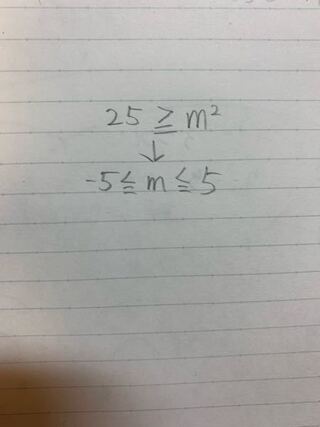 25 ≧ m²
↓
-5 ≦ m ≦ 5